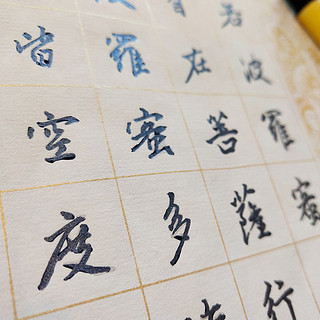 若波羅蜜
在菩薩行
羅蜜多
皆空度